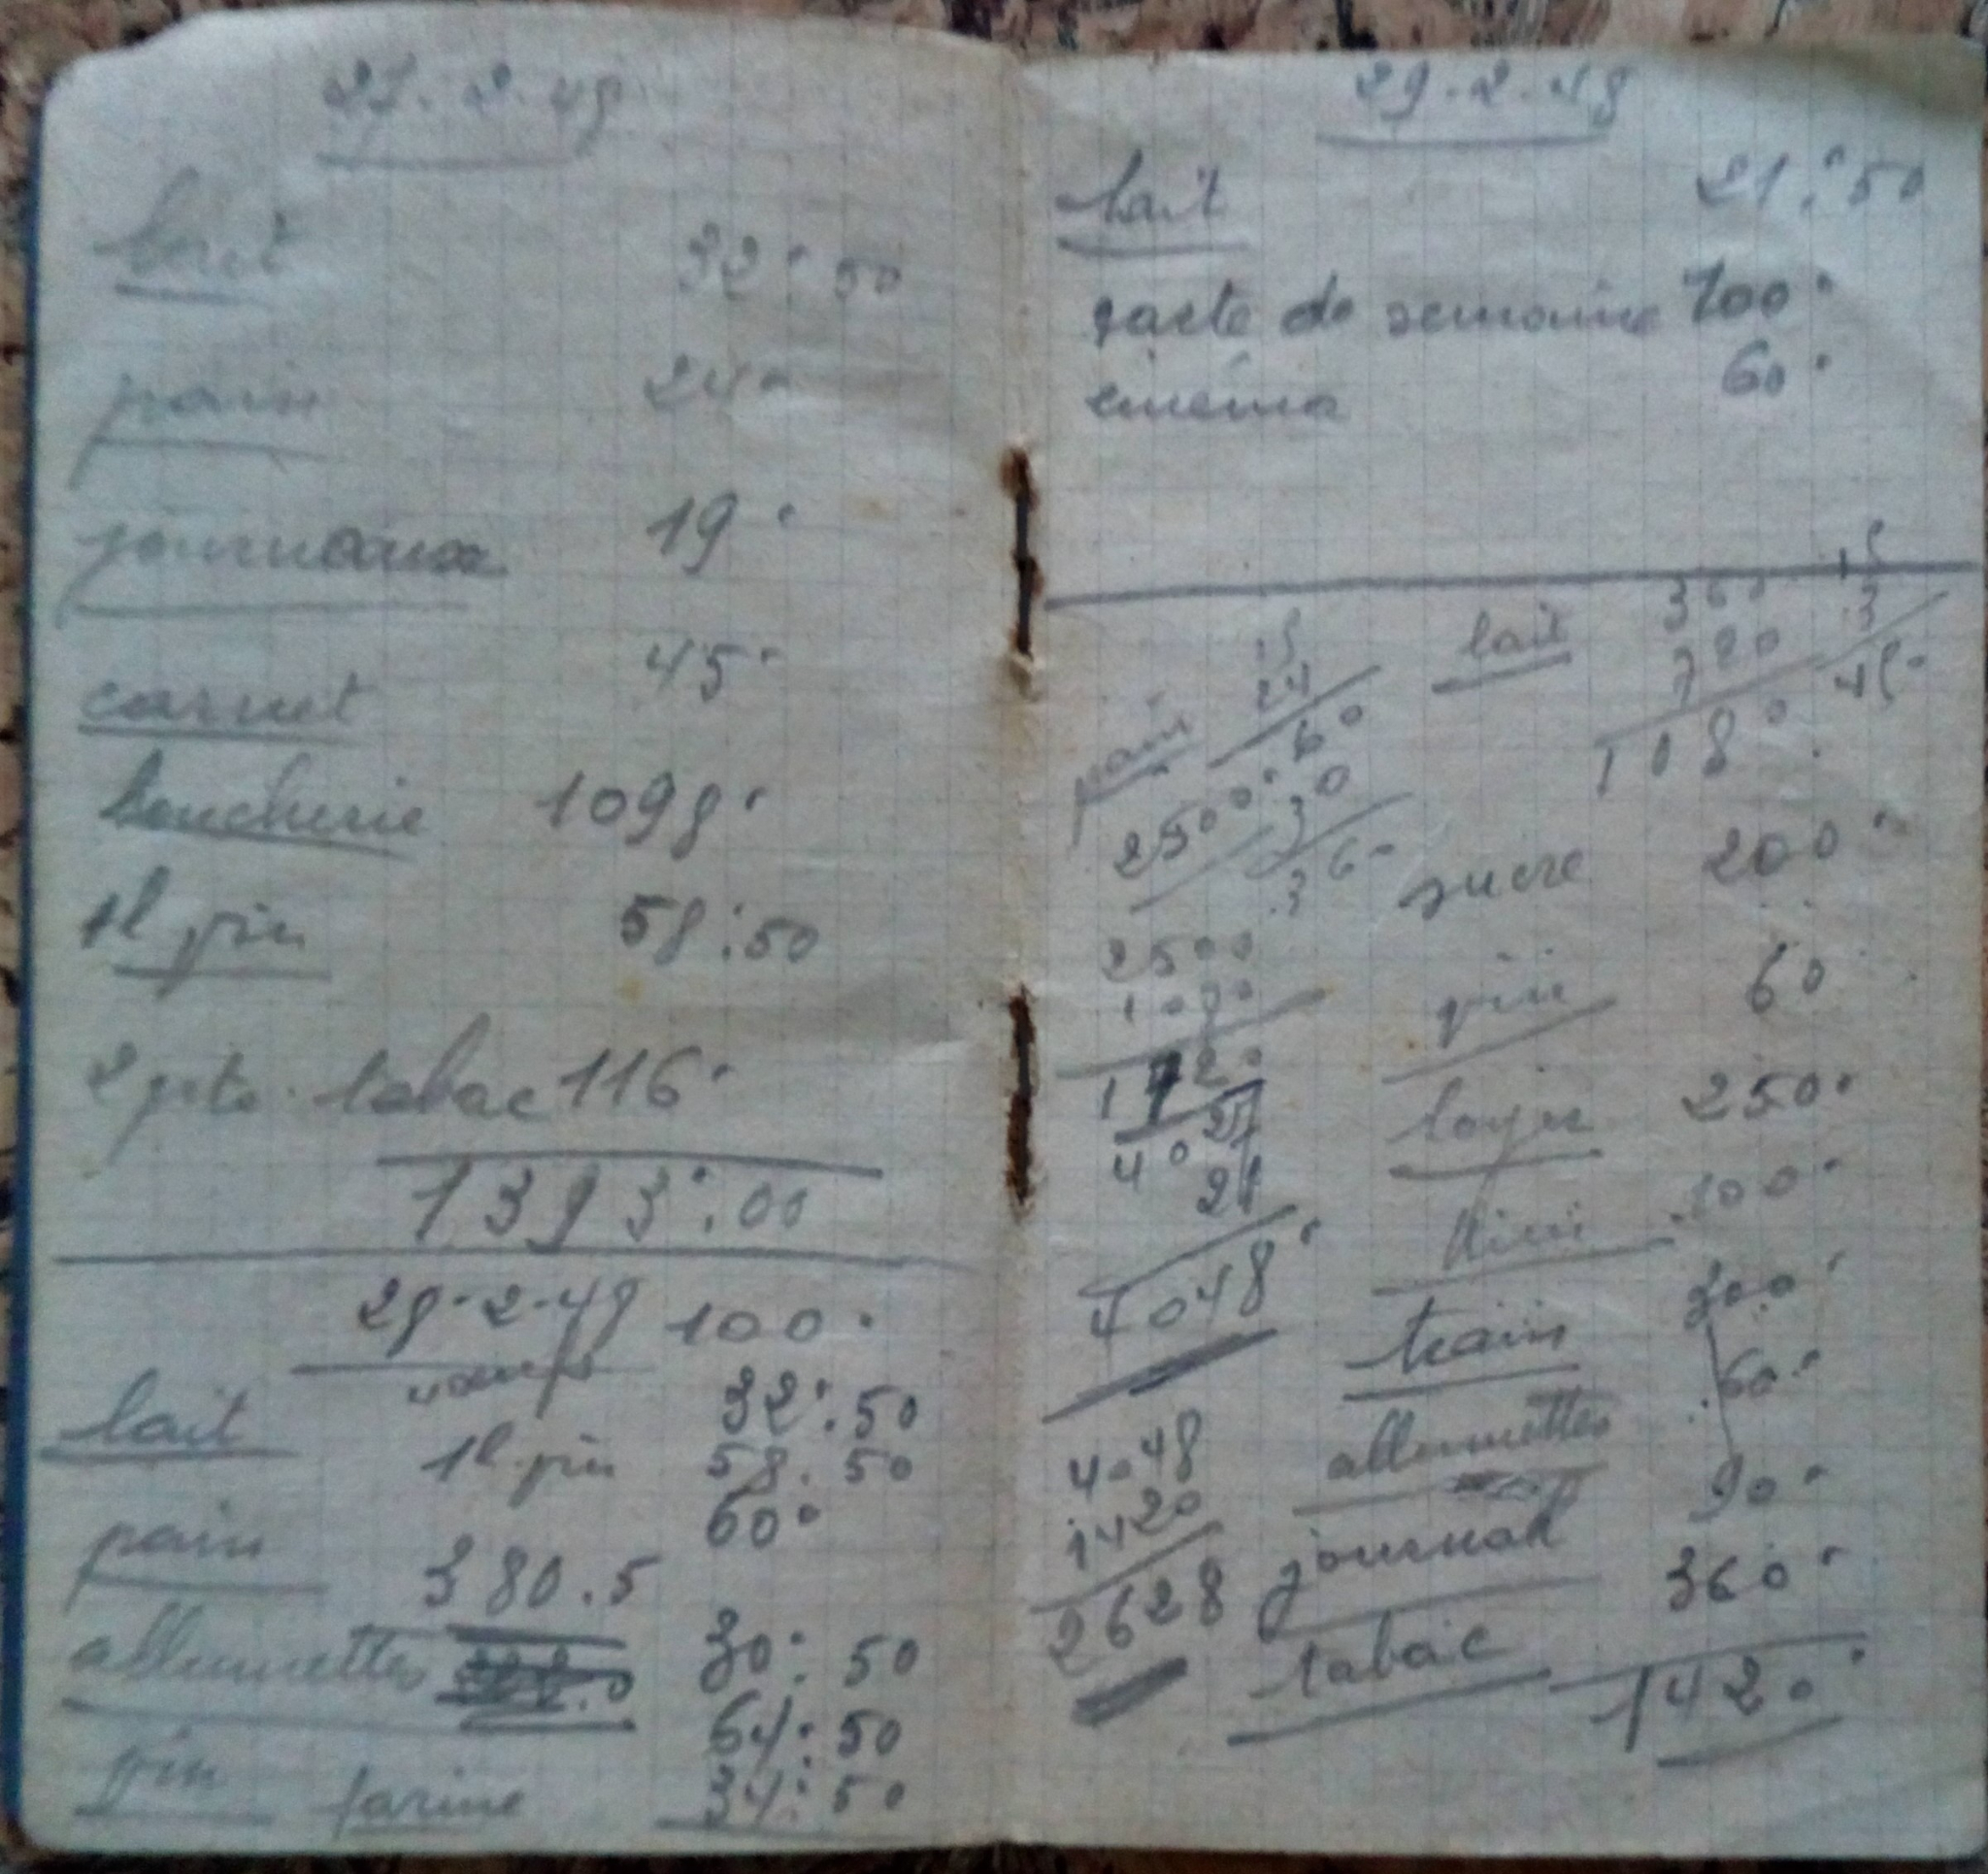 27-2-48
lait 32.50
pain 24.
journeaux 19.
carnet 45.
boucherie 1098.
1l vin 58.50
2 pts. tabac 116.
1393.00
28-2-48 100.
lait 32.50
1l vin 58.50
pain 60.
380.5
allumettes 30.50
64.50
vin farine 34.50
29-2-48
lait 21.50
de semaine 700.
cinéma 60.
15
15 lait 360 3
24 720 45.
pain 60 1080.
2500. 30
360
sucre 200.
2500
1080 vin 60
1420
loyer 250.
4027
21 100.
4048.
train 300.
allumettes 60.
4048
1420 journal 90.
2628
tabac 360.
1420.